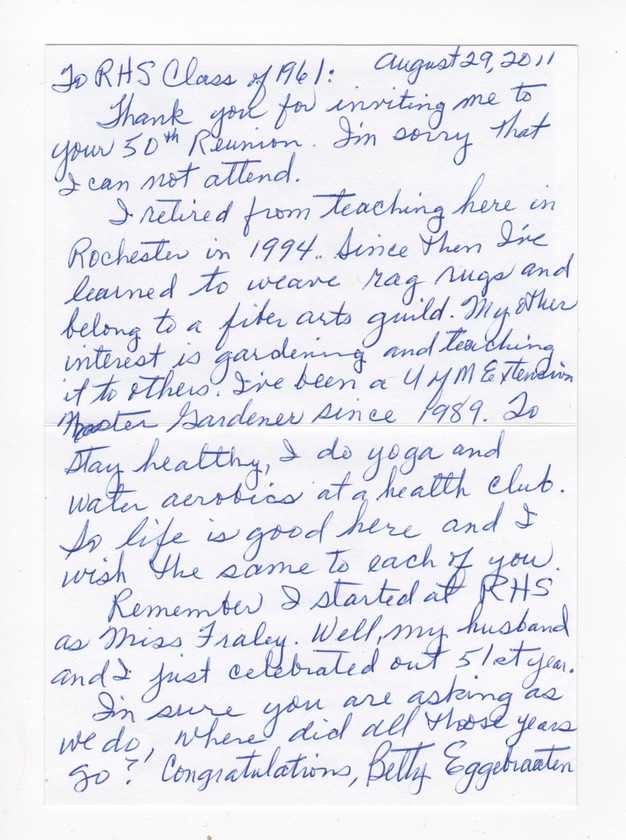 To RHS Class of 1961: August 29, 2011
Thank you for inviting me to
your 50th Reunion. I'm sorry that
I can not attend.
I retired from teaching here in
Rochester in 1994. Since then I've
learned to weave rag rugs and
belong to a fiber arts guild. My other
interest is gardening and teaching
it to others. I've been a U of M Extension
Master Gardener since 1989. To
stay healthy, I do yoga and
water aerobics at a health club.
So life is good here and I
wish the same to each of you.
Remember I started at RHS
as Miss Fraley. Well, my husband
and I just celebrated out 51st year.
I'm sure you are asking as
we do, where did all those years
go? Congratulations, Betty Eggebraaten